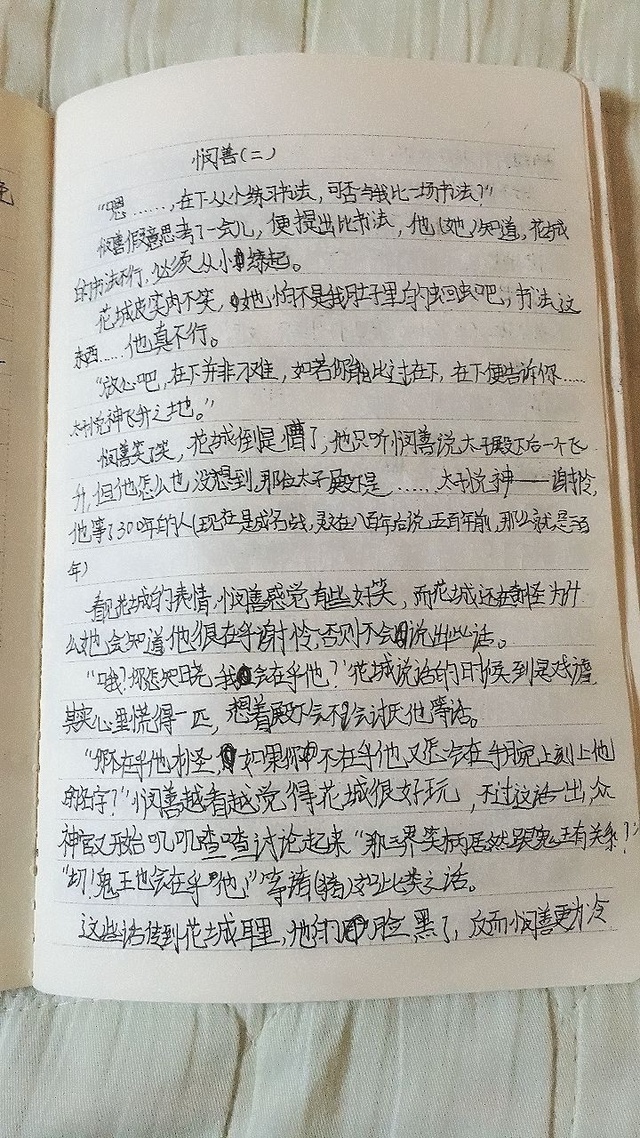 悯善(二)
“嗯……,在下从小练习书法,可否与我比一场书法?”
悯善假意思考了一会儿,便提出比书法,他(她)知道,花城
的书法不行,必须从小练起。
花城皮笑肉不笑,她怕不是我肚子里的蛔虫吧,书法这
东西……他真不行。
“放心吧,在下并非刁难,如若你能比过在下,在下便告诉你……
太子悦神飞升之地。”
悯善笑了笑,花城倒是懵了,他只听悯善说太子殿下后一个飞
升,但他怎么也没想到,那位太子殿下是……太子悦神——谢怜,
他等了300年的人(现在是成名战,灵文在八百年后说五百年前,那么就是三百
年)
看见花城的表情,悯善感觉有些好笑,而花城还在奇怪为什
么她会知道他很在乎谢怜,否则不会说出此话。
“哦?你怎知晓我会在乎他?”花城说话的时候到是戏谑,
其实心里慌得一匹,想着殿下会不会讨厌他等话。
“你不在乎他才怪,如果你不在乎他又怎会在手腕上刻上他
的名字?”悯善越看越觉得花城很好玩,不过这话一出,众
神官又开始叽叽喳喳讨论起来“那三界笑柄居然跟鬼王有关系?”
“切!鬼王也会在乎他!”等诸(猪)如此类之话。
这些话传到花城耳里,他的脸黑了,反而悯善更为冷